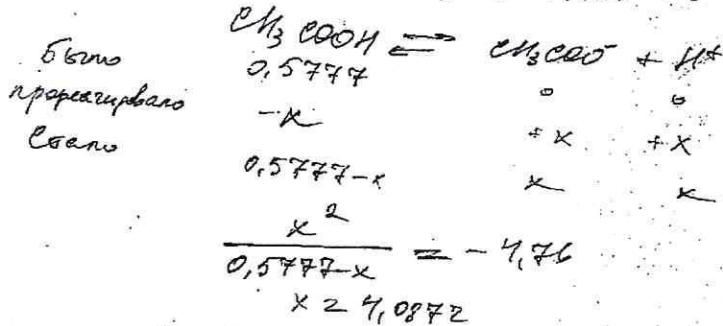 CH₃COOH ⇌ CH₃COO⁻ + H⁺
Было 0,5777 0 0
прореагировало -x +x +x
Стало 0,5777-x x x
x² / 0,5777-x = -4,76
x = 4,0872